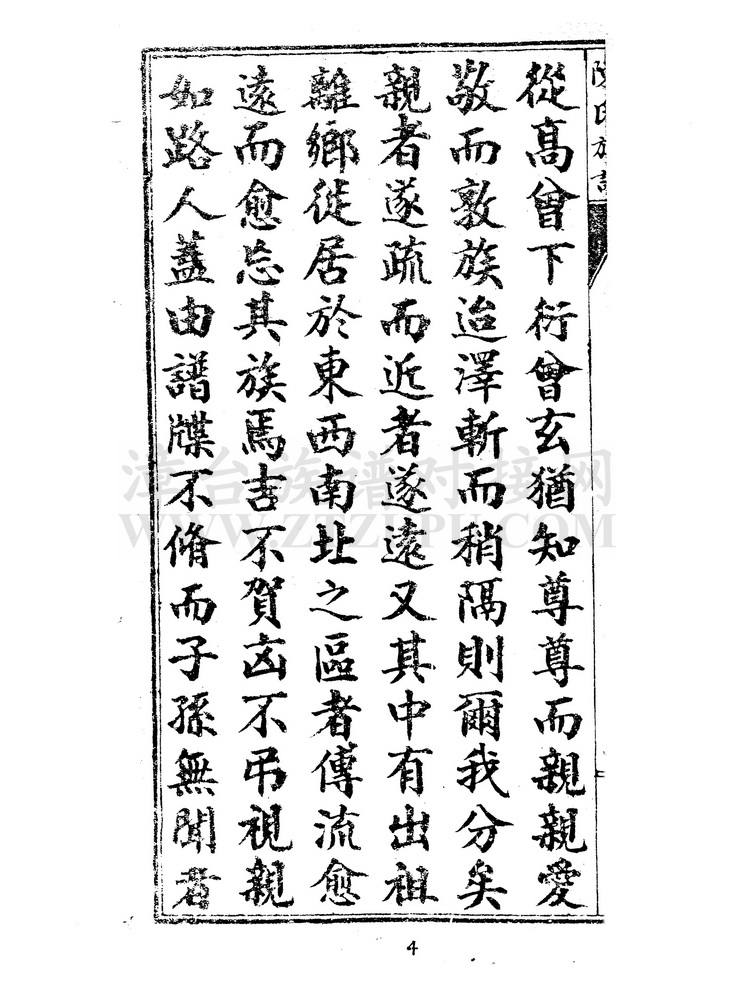 陳氏族譜
從高曾下衍曾玄猶知尊尊而親親愛
敬而敦族迨澤斬而稍隔則爾我分矣
親者遂疏而近者遂遠又其中有出祖
離鄉徙居於東西南北之區者傳流愈
遠而愈忘其族焉吉不賀凶不弔視親
如路人蓋由譜牒不脩而子孫無聞者
漳台族谱对接网
WWW.ZTZUPU.COM
4